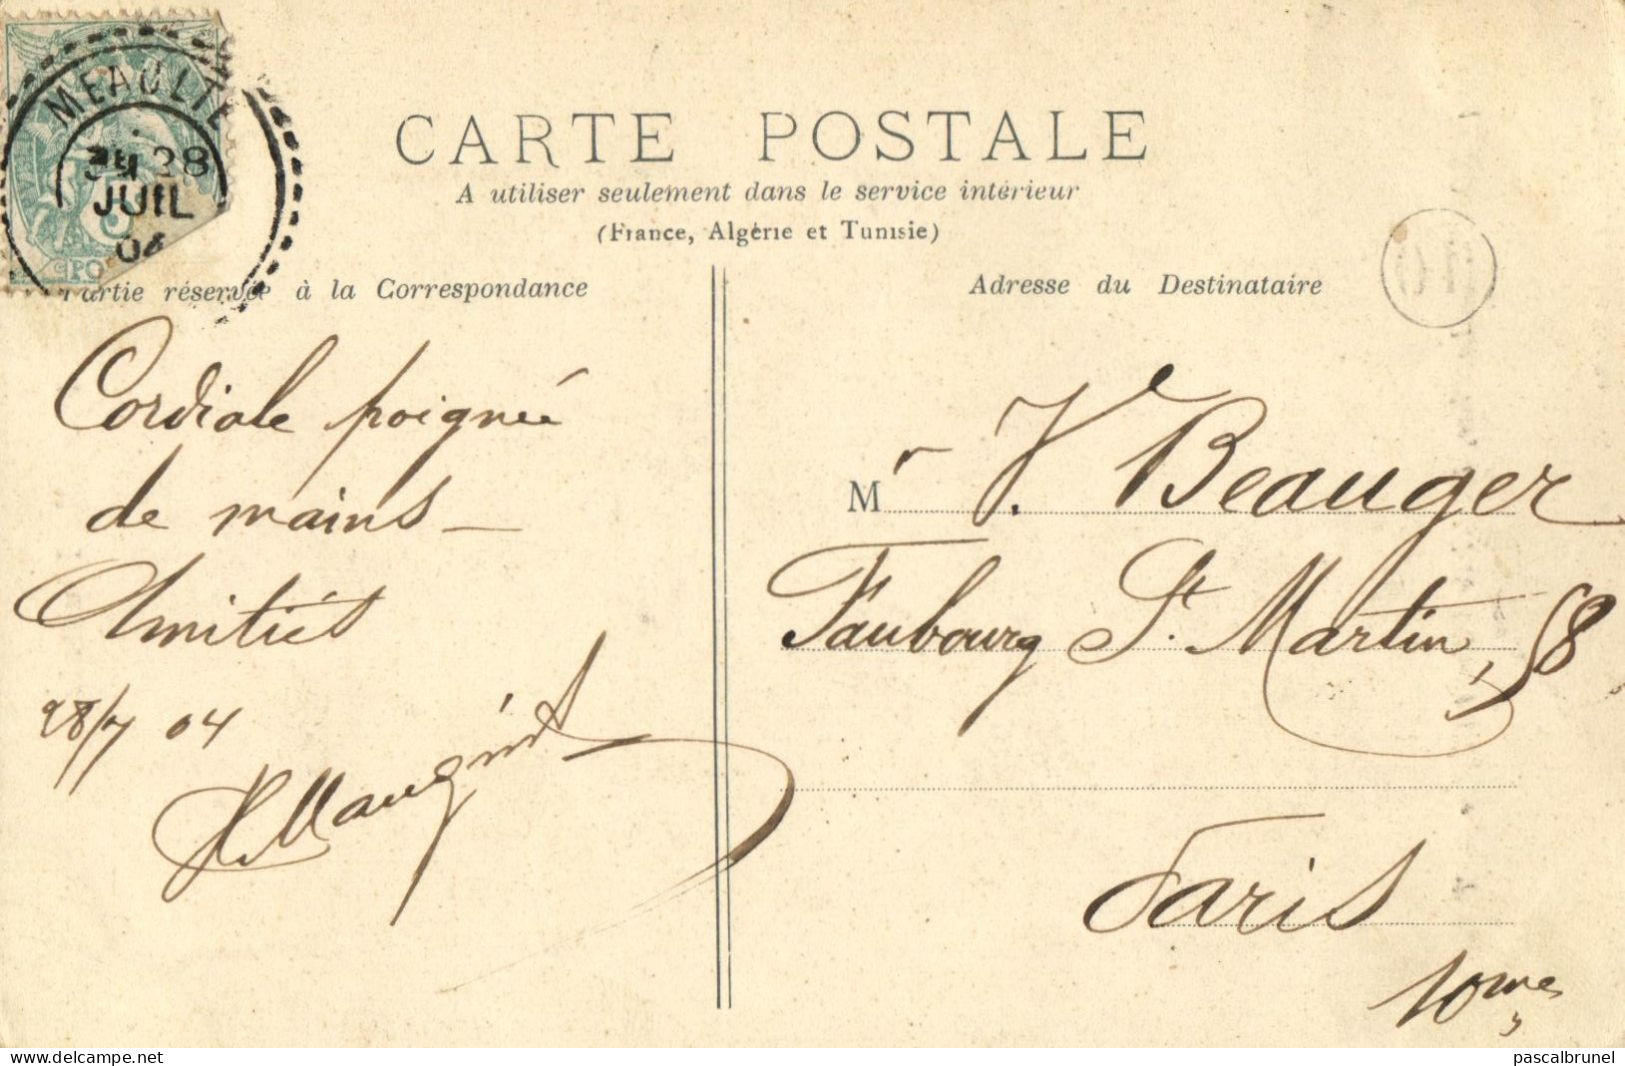 MEAULTE
28
JUIL
04
CARTE POSTALE
A utiliser seulement dans le service intérieur
(France, Algérie et Tunisie)
Partie réservée à la Correspondance
Adresse du Destinataire
Cordiale poignée
de mains
Amitiés
28/7 04
Maugint
Mr V. Beauger
Faubourg St. Martin, 58
Paris
10me
pascalbrunel